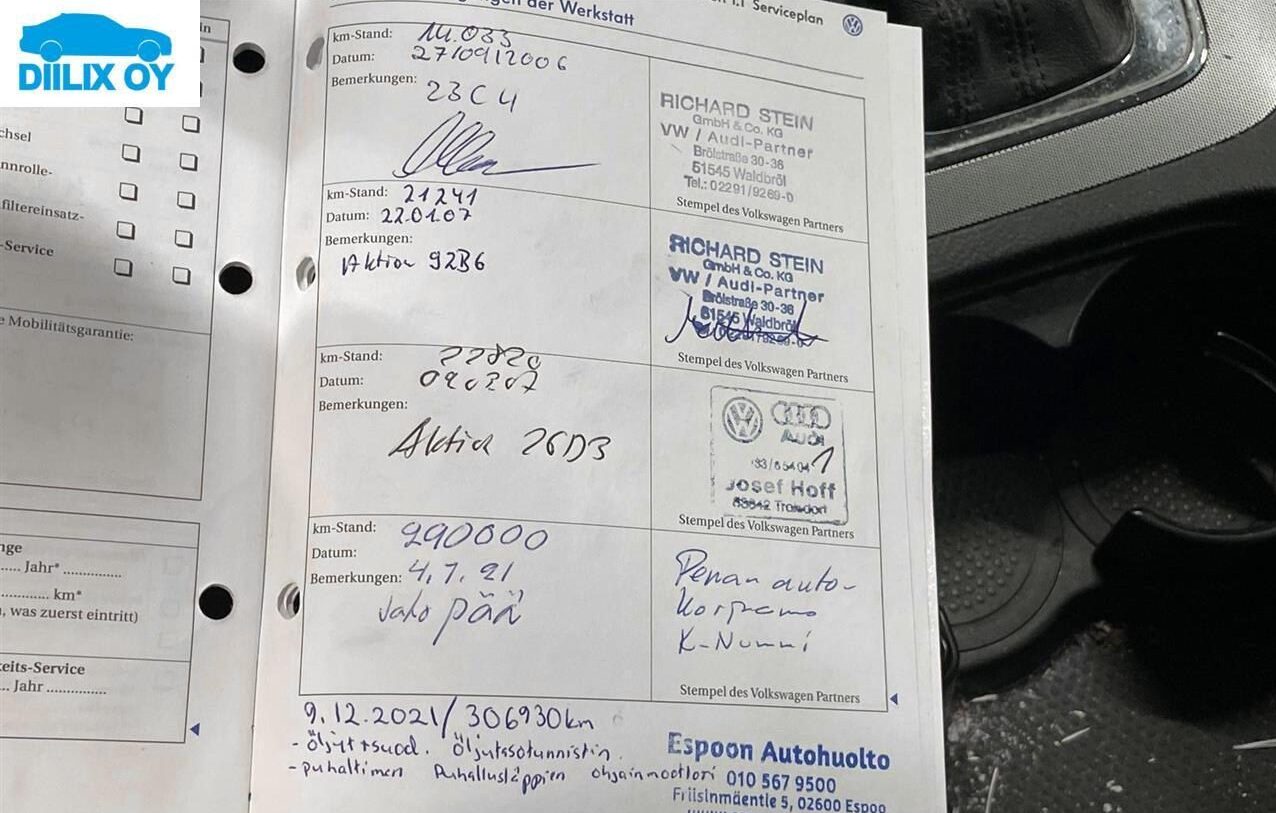 DIILIX OY
in
chsel
nnrolle-
filtereinsatz-
-Service
e Mobilitätsgarantie:
nge
..... Jahr* ..............
............ km*
, was zuerst eintritt)
keits-Service
... Jahr ..............
der Werkstatt
1.1 Serviceplan
km-Stand: 14.033
Datum: 27/09/2006
Bemerkungen:
23C4
RICHARD STEIN
GmbH & Co. KG
VW / Audi-Partner
Brölstraße 30-36
51545 Waldbröl
Tel.: 02291/9269-0
Stempel des Volkswagen Partners
km-Stand: 21241
Datum: 22.01.07
Bemerkungen:
Aktion 92B6
RICHARD STEIN
GmbH & Co. KG
VW / Audi-Partner
Brölstraße 30-36
51545 Waldbröl
Stempel des Volkswagen Partners
km-Stand: 22820
Datum:
Bemerkungen:
Aktion 26D3
Audi
Josef Hoff
53842 Troisdorf
Stempel des Volkswagen Partners
km-Stand: 290000
Datum:
Bemerkungen: 4.7.21
Jako pää
Penan auto-
Korjaamo
K-Nummi
Stempel des Volkswagen Partners
9.12.2021/306930km
- öljyt+suod. Öljytasotunnistin.
- puhaltimen Puhallusläppien ohjainmoottori
Espoon Autohuolto
010 567 9500
Friisinmäentie 5, 02600 Espoo